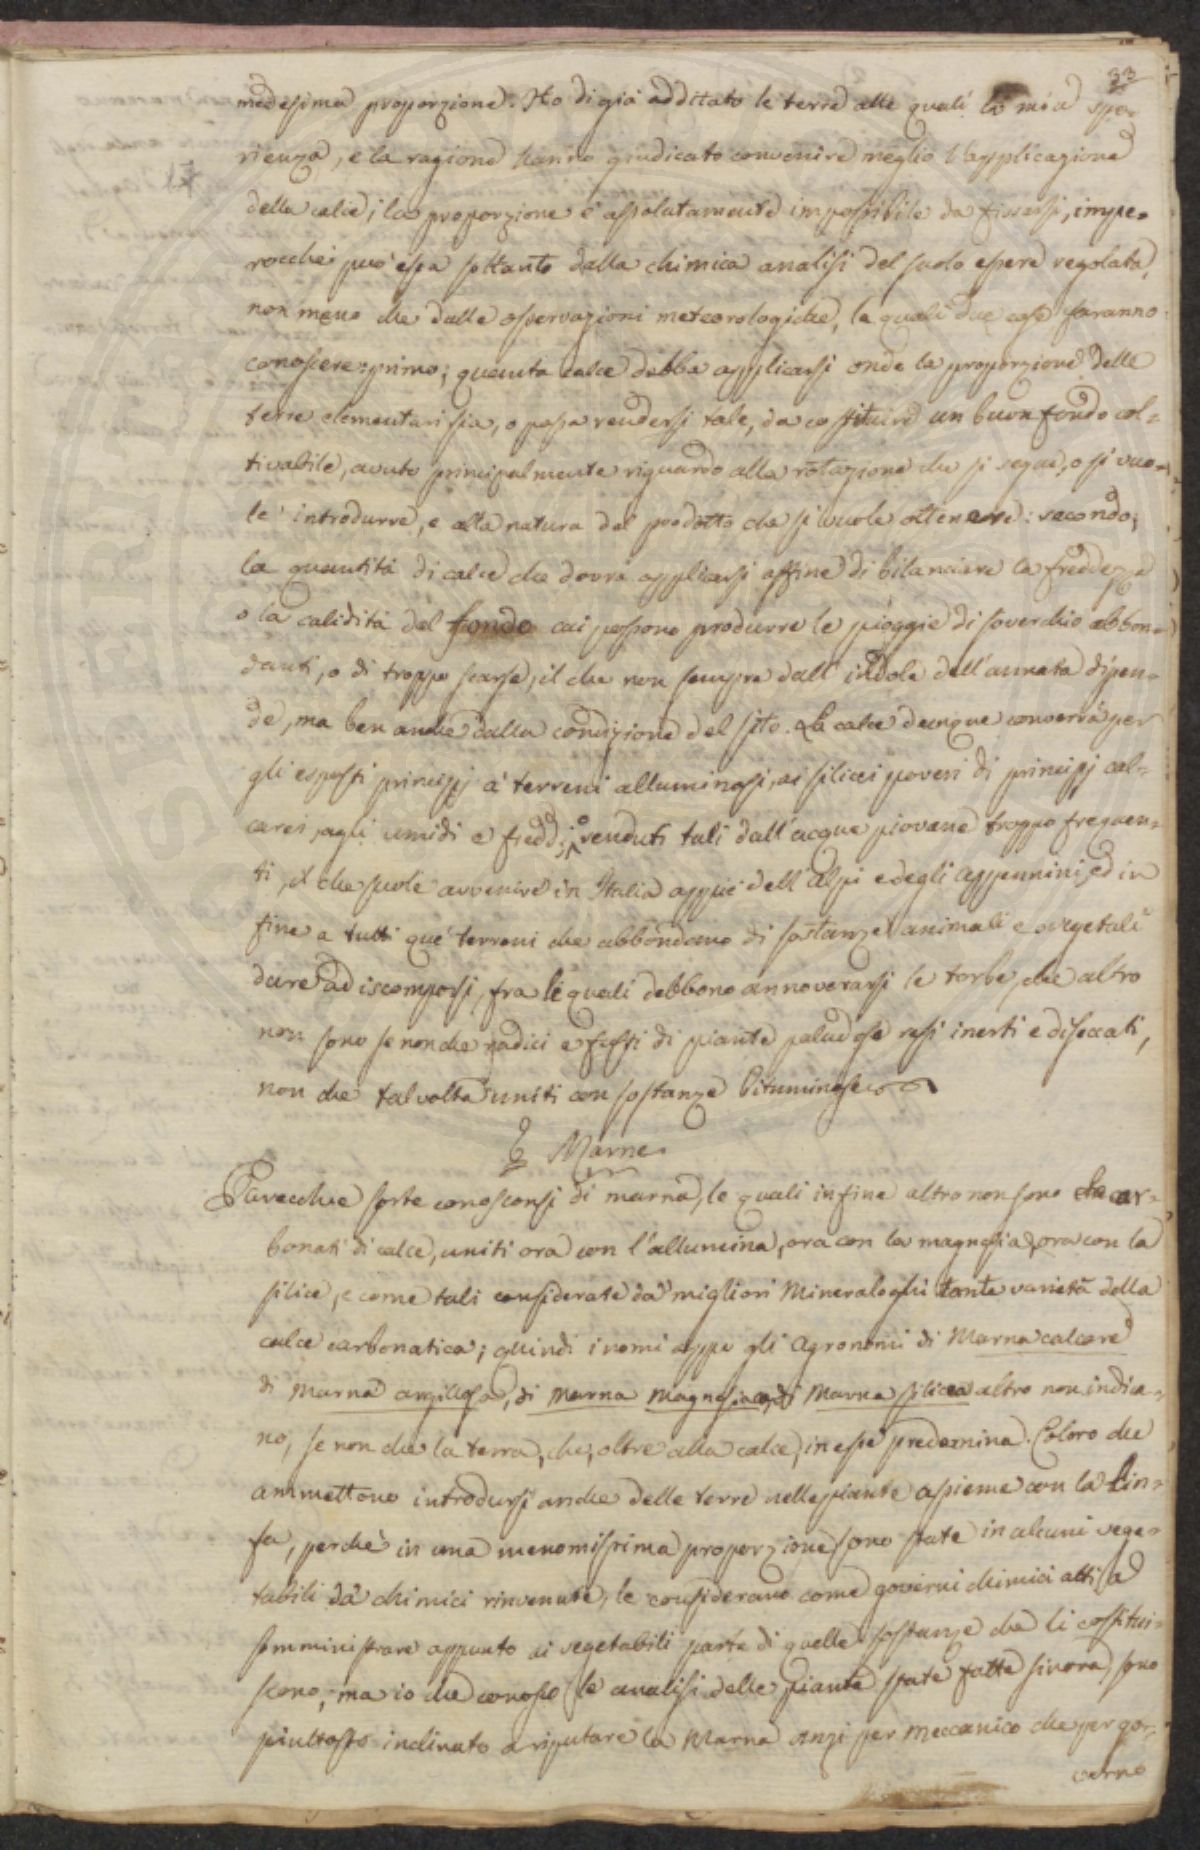 33
medesima proporzione. Ho di già additato le terre alle quali la mia spe-
rienza, e la ragione hanno giudicato convenire meglio l'applicazione
della calce; la proporzione è assolutamente impossibile da fissarsi, impe-
rocchè può essa soltanto dalla chimica analisi del suolo essere regolata,
non meno che dalle osservazioni meteorologiche, le quali due cose faranno
conoscere: primo; quanta calce debba applicarsi onde la proporzione delle
terre elementari sia, o possa rendersi tale, da costituire un buon fondo col-
tivabile, avuto principalmente riguardo alla rotazione che si segue, o si vuo-
le introdurre, e alla natura del prodotto che si vuole ottenere: secondo;
la quantità di calce che dovrà applicarsi affine di bilanciare la freddezza
o la calidità del fondo cui possono produrre le pioggie di soverchio abbon-
danti, o di troppo scarse, il che non sempre dall'indole dell'annata dipen-
de, ma ben anche dalla condizione del sito. La calce dunque converrà per
gli esposti principj a' terreni alluminosi, ai silicei poveri di principj cal-
carei, agli umidi e freddi, o renduti tali dall'acque piovane troppo frequen-
ti, il che suole avvenire in Italia appiè dell'Alpi e degli Appennini, ed in
fine a tutti que' terreni che abbondano di sostanze animali e vegetali
dure ad iscomporsi, fra le quali debbono annoverarsi le torbe, che altro
non sono se non che radici e fusti di piante paludose resi inerti e diseccati,
non che talvolta uniti con sostanze bituminose
6 Marne
Parecchie sorte conosconsi di marna, le quali in fine altro non sono che car-
bonati di calce, uniti ora con l'allumina, ora con la magnesia, ora con la
silice, e come tali considerate da' migliori Mineraloghi tante varietà della
calce carbonatica; quindi i nomi appo gli Agronomi di Marna calcare
di Marna argillosa, di Marna Magnesiaca, di Marna silicea altro non indica-
no, se non che la terra, che, oltre alla calce, in esse predomina. Coloro che
ammettono introdursi anche delle terre nelle piante assieme con la lin-
fa, perchè in una menomissima proporzione sono state in alcuni vege-
tabili da' chimici rinvenute, le considerano come governi chimici atti a
somministrare appunto ai vegetabili parte di quelle sostanze che li costitui-
scono; ma io che conosco le analisi delle piante state fatte sinora, sono
piuttosto inclinato a riputare la Marna anzi per meccanico che per go-
verno